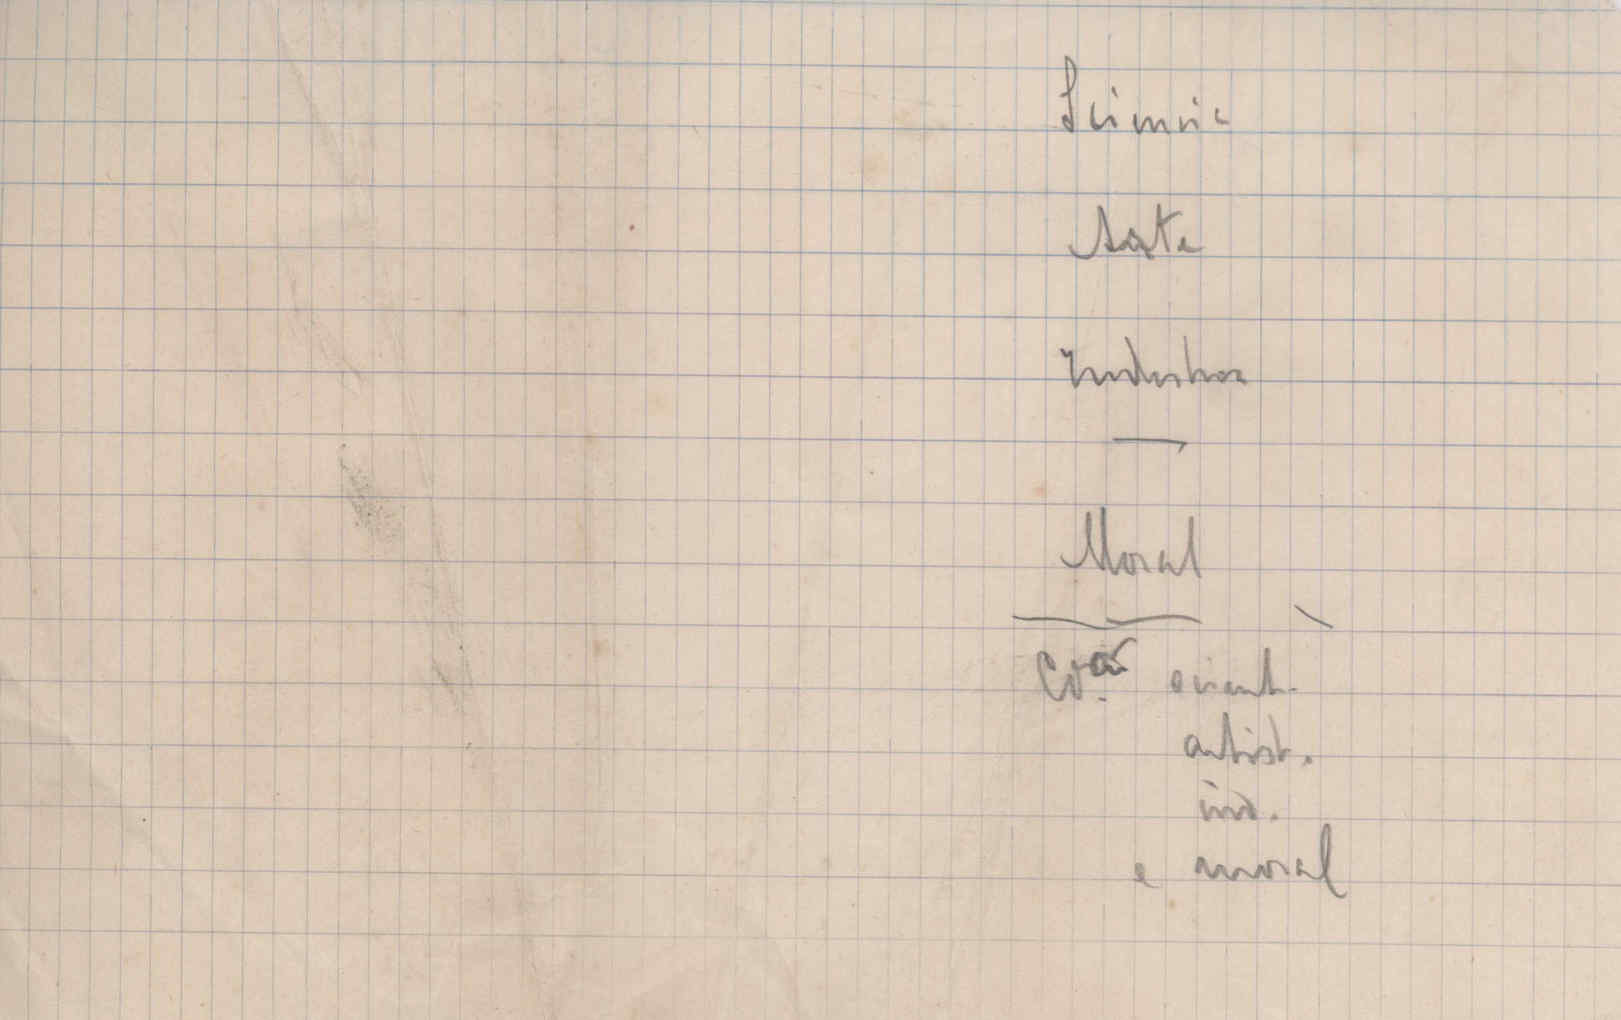 Sciencia
Arte
Industria
Moral
scient.
artist.
ind.
e moral